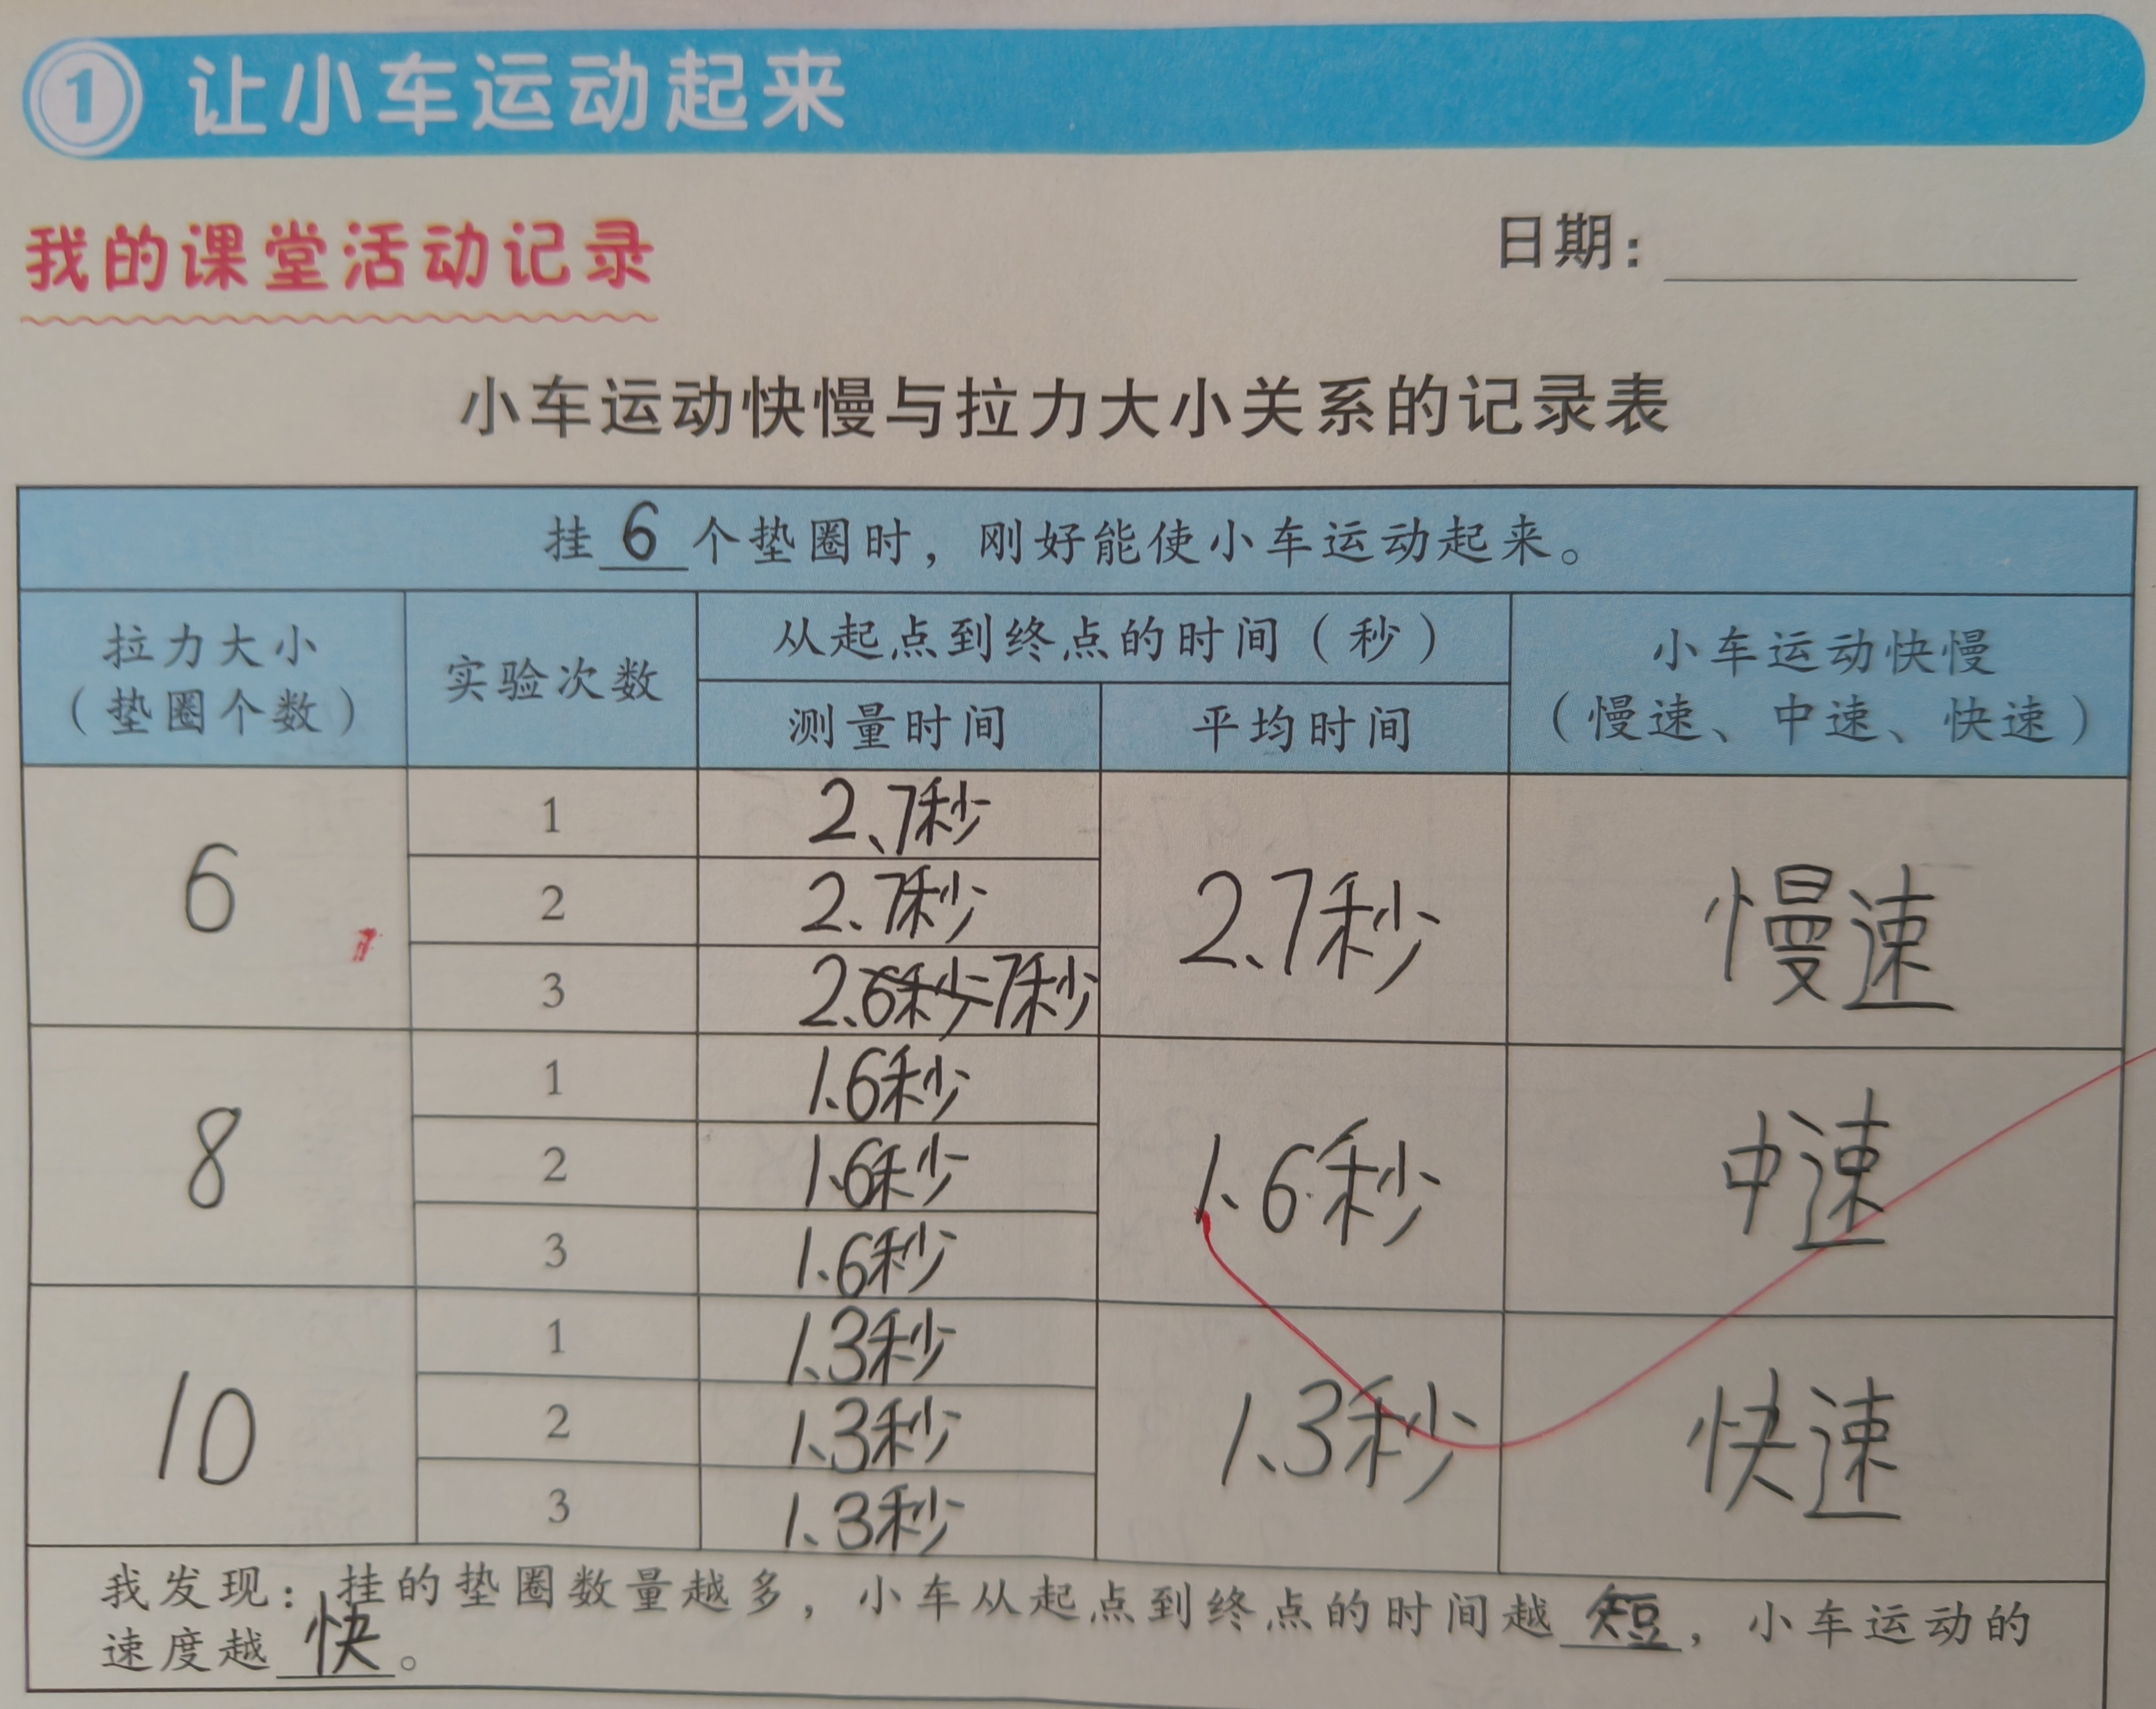 1 让小车运动起来
我的课堂活动记录
日期：
小车运动快慢与拉力大小关系的记录表
挂 6 个垫圈时，刚好能使小车运动起来。
拉力大小
（垫圈个数）
实验次数
从起点到终点的时间（秒）
测量时间
平均时间
小车运动快慢
（慢速、中速、快速）
6
1
2.7秒
2
2.7秒
3
2.6秒7秒
2.7秒
慢速
8
1
1.6秒
2
1.6秒
3
1.6秒
1.6秒
中速
10
1
1.3秒
2
1.3秒
3
1.3秒
1.3秒
快速
我发现：挂的垫圈数量越多，小车从起点到终点的时间越 短，小车运动的
速度越 快。